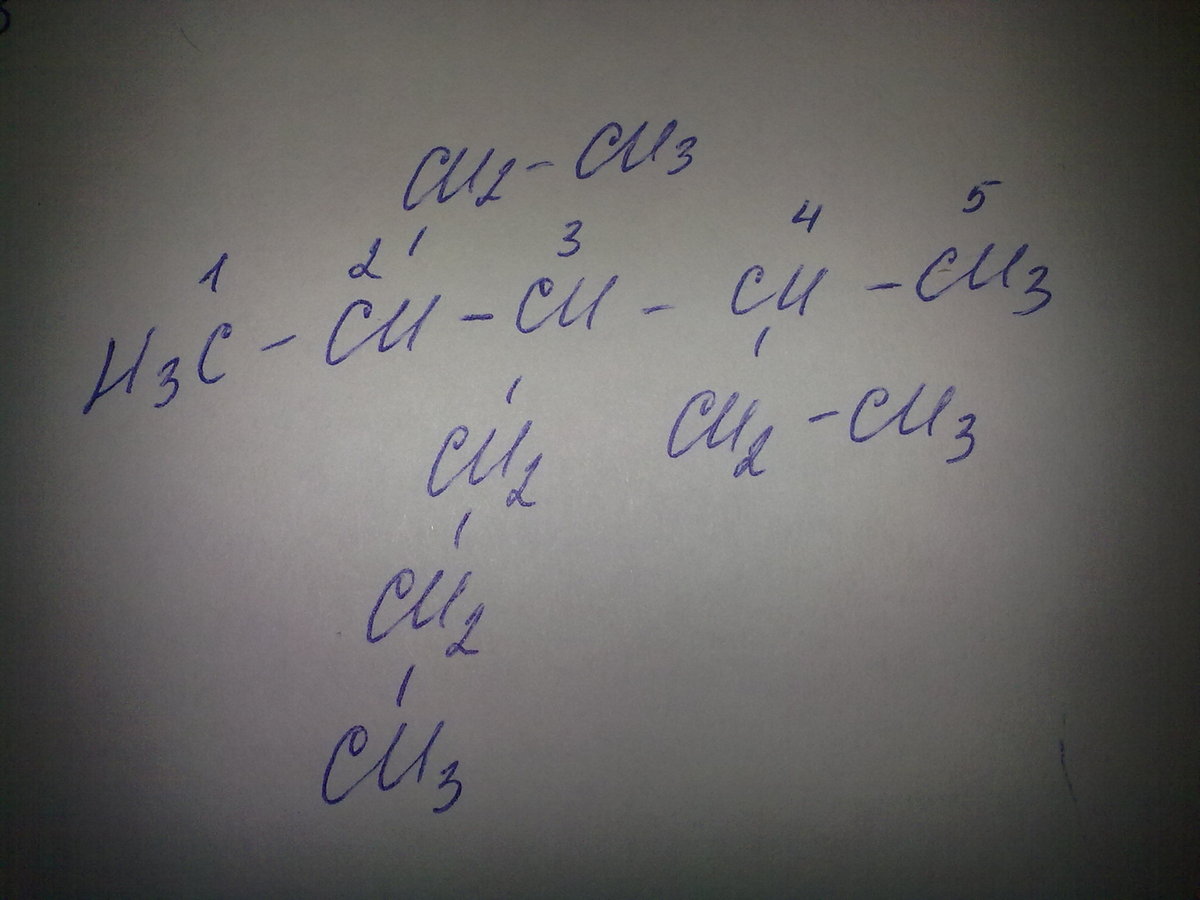 CH2-CH3
1 2 3 4 5
H3C - CH - CH - CH - CH3
CH2 CH2-CH3
CH2
CH3